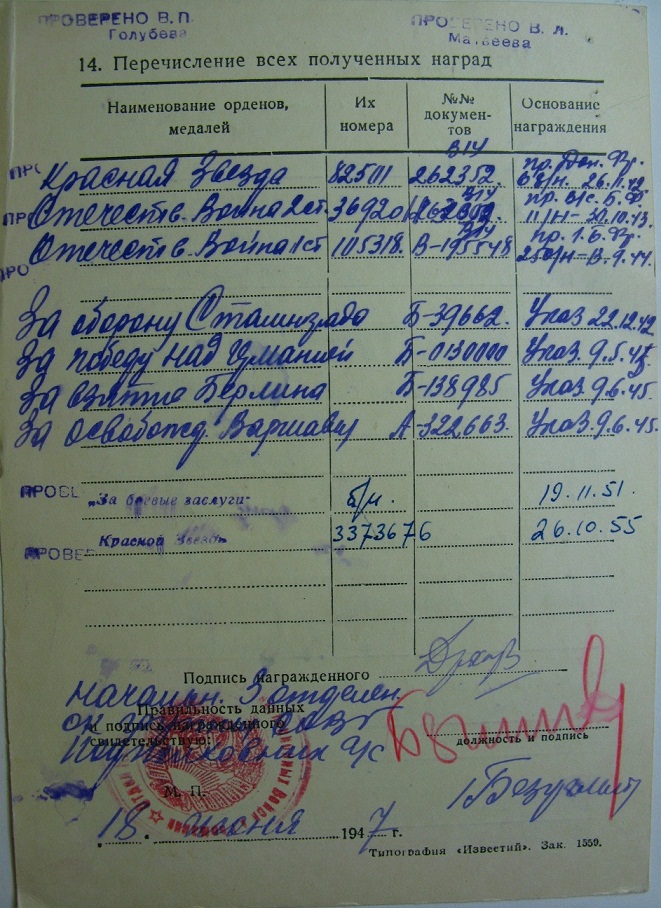 ПРОВЕРЕНО В. П. Голубева
ПРОВЕРЕНО В. Л. Матвеева
14. Перечисление всех полученных наград
Наименование орденов, медалей Их номера №№ документов Основание награждения
Красная Звезда 82501 262352 пр. Дон. Фр. 68/н. 26.11.42
Отечеств. Война 2 ст. 369201 пр. в/с. Б. Ф. 11/н - 30.10.43.
Отечеств. Война 1 ст 105318. В-195548 пр. 1. Б. Фр.
За оборону Сталинграда Б-39662. Указ 22.12.42
За победу над Германией Б-0130000 Указ. 9.5.45
За взятие Берлина Б-138985 Указ. 9.6.45.
За освобожд. Варшавы А-322663. Указ. 9.6.45.
ПРОВЕ
„За боевые заслуги" б/н. 19.11.51.
Красной Звезды 3373676 26.10.55
ПРОВЕР
Подпись награжденного
Начальн. 3 отделен.
Правильность данных
и подпись награжденного
свидетельствую:
Подполковник а/с
должность и подпись
М. П.
18. июня 1947 г.
Типография «Известий». Зак. 1559.